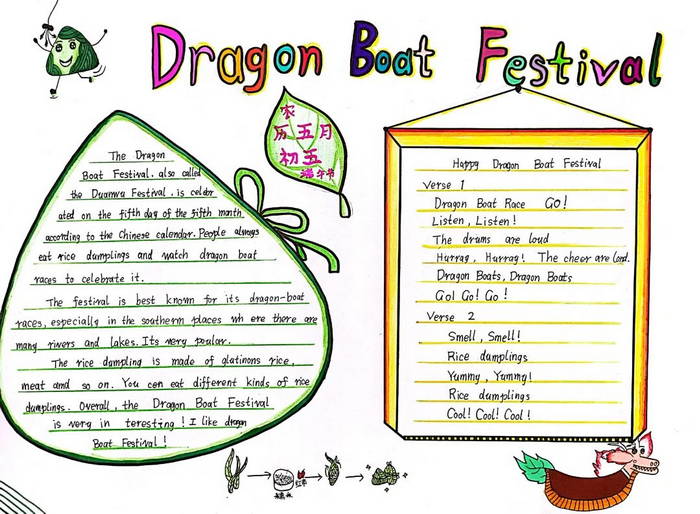 Dragon Boat Festival
农
历五月
初五
端午节
The Dragon
Boat Festival, also called
the Duanwu Festival, is celebr
ated on the fifth day of the fifth month
according to the Chinese calendar. People always
eat rice dumplings and watch dragon boat
races to celebrate it.
The festival is best known for its dragon-boat
races, especially in the southern places wh ere there are
many rivers and lakes. Its very poular.
The rice dumpling is made of glatinons rice,
meat and so on. You can eat different kinds of rice
dumplings. Overall, the Dragon Boat Festival
is very in teresting! I like dragon
Boat Festival!
Happy Dragon Boat Festival
Verse 1
Dragon Boat Race GO!
Listen, Listen!
The drums are loud
Hurray, Hurray! The cheer are loud.
Dragon Boats, Dragon Boats
Go! Go! Go!
Verse 2
Smell, Smell!
Rice dumplings
Yummy, Yummy!
Rice dumplings
Cool! Cool! Cool!